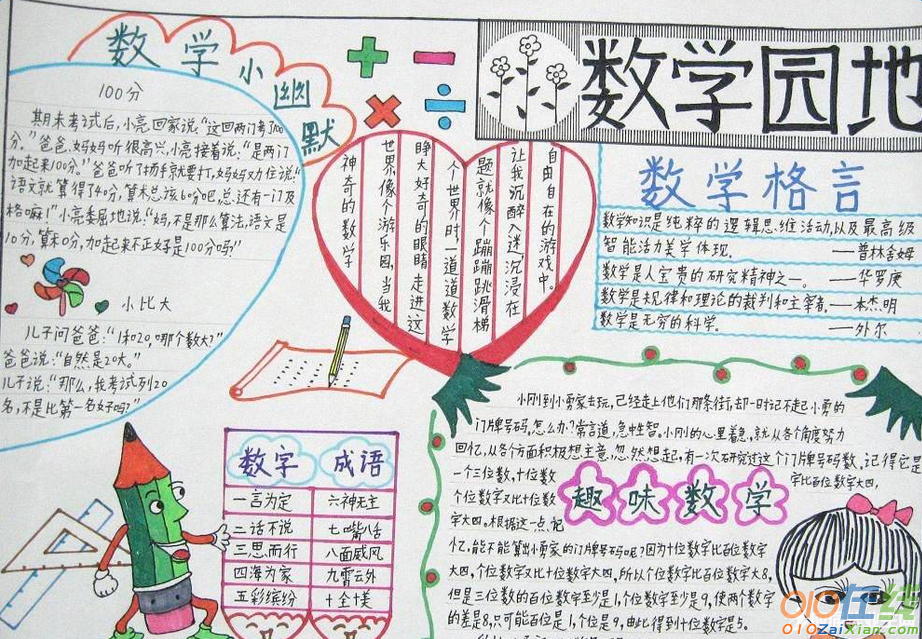 数学小幽默
100分
期末考试后,小亮回家说“这回两门考了100
分。”爸爸、妈妈听很高兴,小亮接着说:“是两门
加起来100分。”爸爸听了扬手就要打,妈妈又办住说“
语文就算得了40分,算术总该60分吧,总还有一门及
格嘛!”小亮委屈地说:“妈,不是那么算法,语文是
10分,算术0分,加起来不正好是100分吗?”
小比大
儿子问爸爸:“1和20,哪个数大?”
爸爸说:“自然是20大。”
儿子说:“那么,我考试列20
名,不是比第一名好吗?”
神奇的数学
世界,像个游乐园,当我
睁大好奇的眼睛走进这
个世界时,一道道数学
题就像个蹦蹦跳滑梯
让我沉醉入迷,沉浸在
自由自在的游戏中。
数学园地
数学格言
数学知识是纯粹的逻辑思维活动,以及最高级
智能活力美学体现。——普林舍姆
数学是人宝贵的研究精神之一。——华罗庚
数学是规律和理论的裁判和主宰者。——本杰明
数学是无穷的科学。——外尔
数字 成语
一言为定 六神无主
二话不说 七嘴八舌
三思而行 八面威风
四海为家 九霄云外
五彩缤纷 十全十美
趣味数学
小刚到小勇家去玩,已经走上他们那条街,却一时记不起小勇的
门牌号码,怎么办?常言道,急中生智。小刚的心里着急,就从各个角度努力
回忆,从各个方面积极想主意,忽然想起,有一次研究过这个门牌号码数,记得它是
一个三位数,十位数
字比百位数字大四,
个位数字又比十位数
字大四。根据这一点记
忆,能不能算出小勇家的门牌号码呢?因为十位数字比百位数字
大四,个位数字又比十位数字大四,所以个位数字比百位数字大8,
但是三位数的百位数字至少是1,个位数字至少是9,使两个数字
的差是8,只可能百位是1,个位是9,由此得到十位数字是5。
010在线
010ZaiXian.com